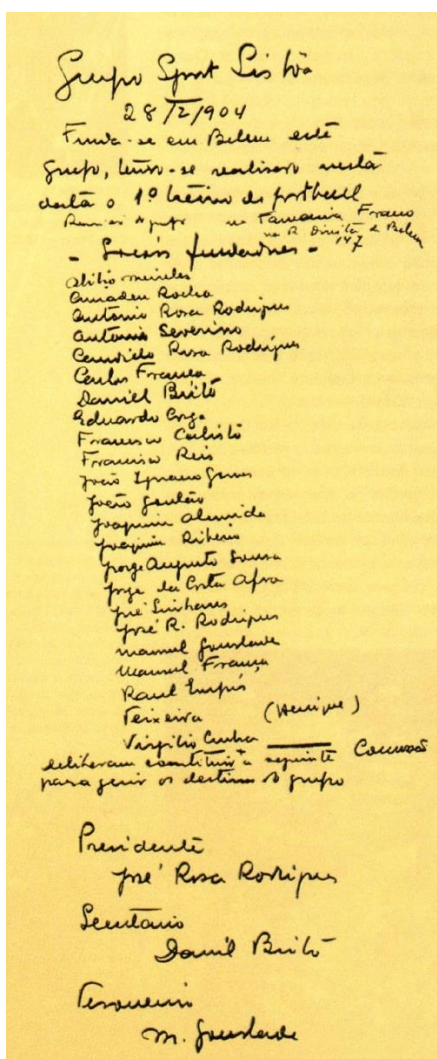 Grupo Sport Lisboa
28/2/904
Funda-se em Belem este
Grupo, tendo-se realisado nesta
data o 1º treino de football
Reuniu o grupo na Farmacia Franco
na R. Direita de Belem
147
- Socios fundadores -
Abilio Meireles
Amadeu Rocha
Antonio Rosa Rodrigues
Antonio Severino
Candido Rosa Rodrigues
Carlos França
Daniel Brito
Eduardo Corga
Francisco Calisto
Francisco Reis
João Ignacio Gomes
João Goulão
Joaquim Almeida
Joaquim Ribeiro
Jorge Augusto Sousa
Jorge da Costa Afra
José Linhares
José R. Rodrigues
Manuel Gourlade
Manuel França
Raul Empis
Teixeira (Henrique)
Virgilio Cunha
deliberam constituir a seguinte Comissão
para gerir os destinos do grupo
Presidente
José Rosa Rodrigues
Secretario
Daniel Brito
Tesoureiro
M. Gourlade